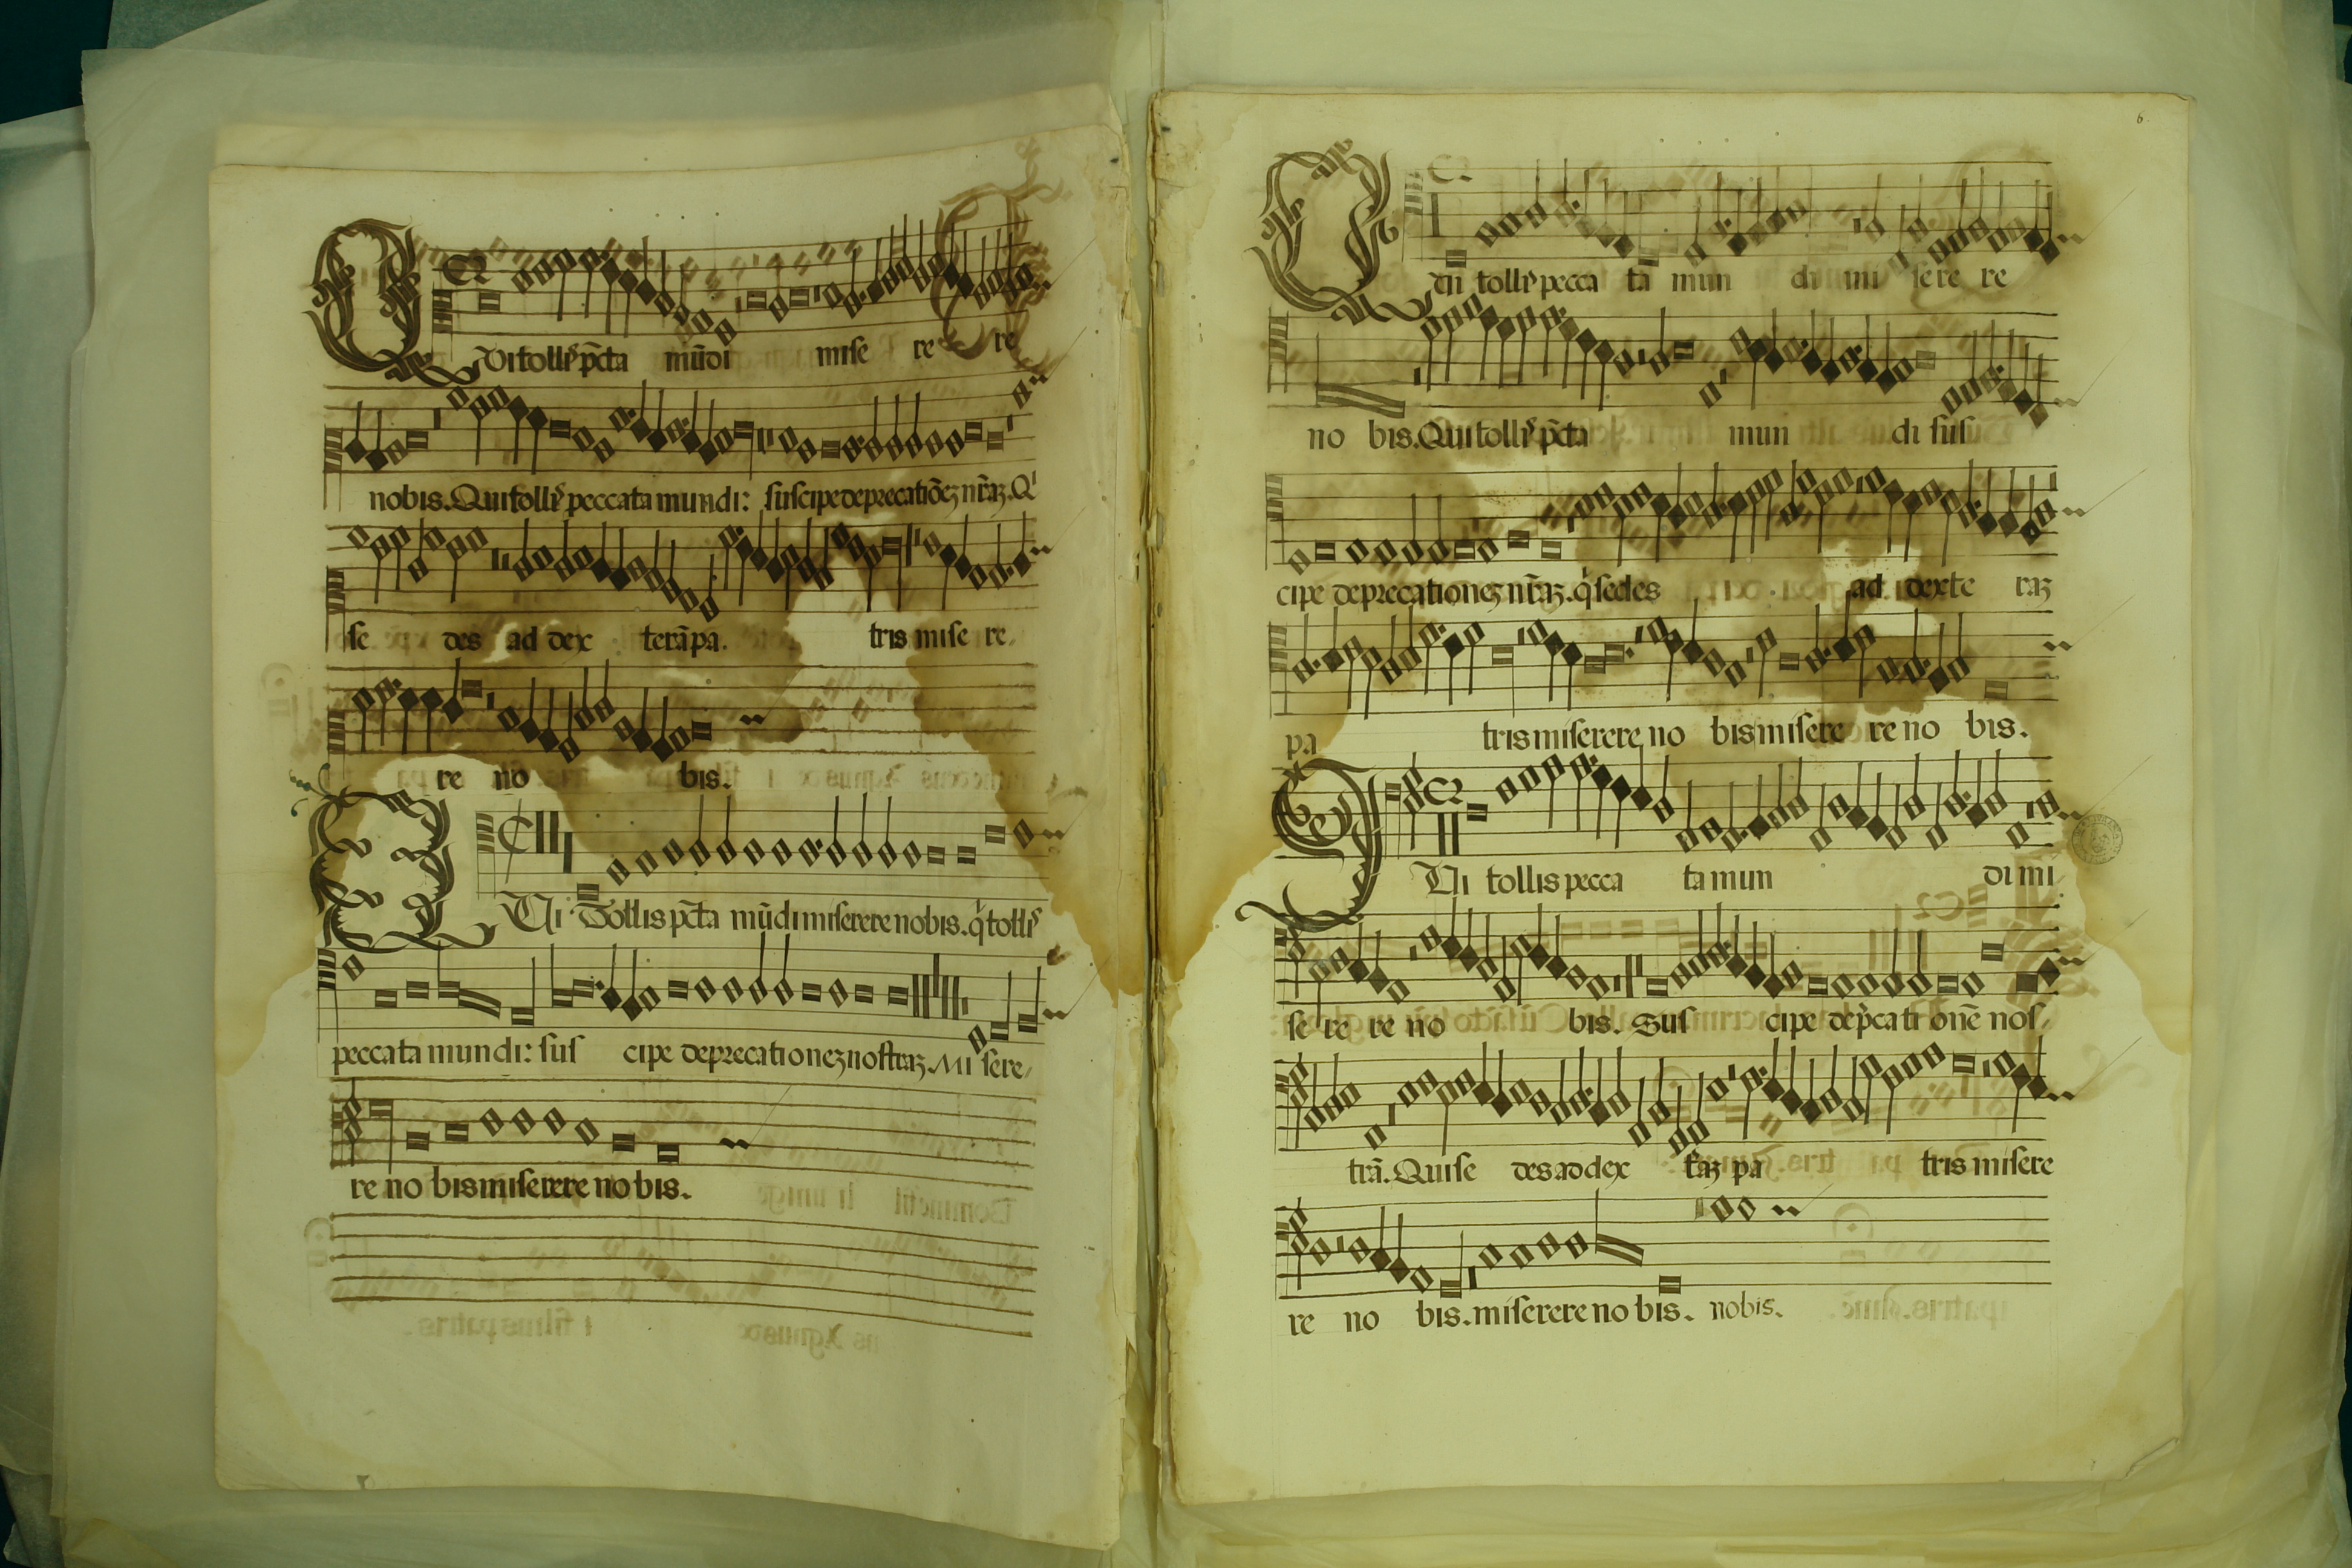 Vi tollꝭ pc̄ta mūdi mise re re
nobis. Qui tollꝭ peccata mundi: suscipe deprecatiōeꝫ nr̄aꝫ. Qⁱ
se des ad dex terā pa. tris mise re
re no bis.
Qui Tollis pc̄ta mūdi miserere nobis. qⁱ tollꝭ
peccata mundi: sus cipe deprecationeꝫ nostraꝫ. Mi sere
re no bis miserere nobis.
6
tollꝭ pecca ta mun di mi sere re
no bis. Qui tollꝭ pc̄ta mun di sus
cipe deprecationeꝫ nr̄aꝫ. qⁱ sedes ad dexte raꝫ
pa tris miserere no bis misere re no bis.
Qui tollis pecca ta mun di mi
se re re no bis. Sus cipe dep̄cati onē nos
trā. Qui se des ad dex pa tris misere
re no bis. miserere no bis. nobis.